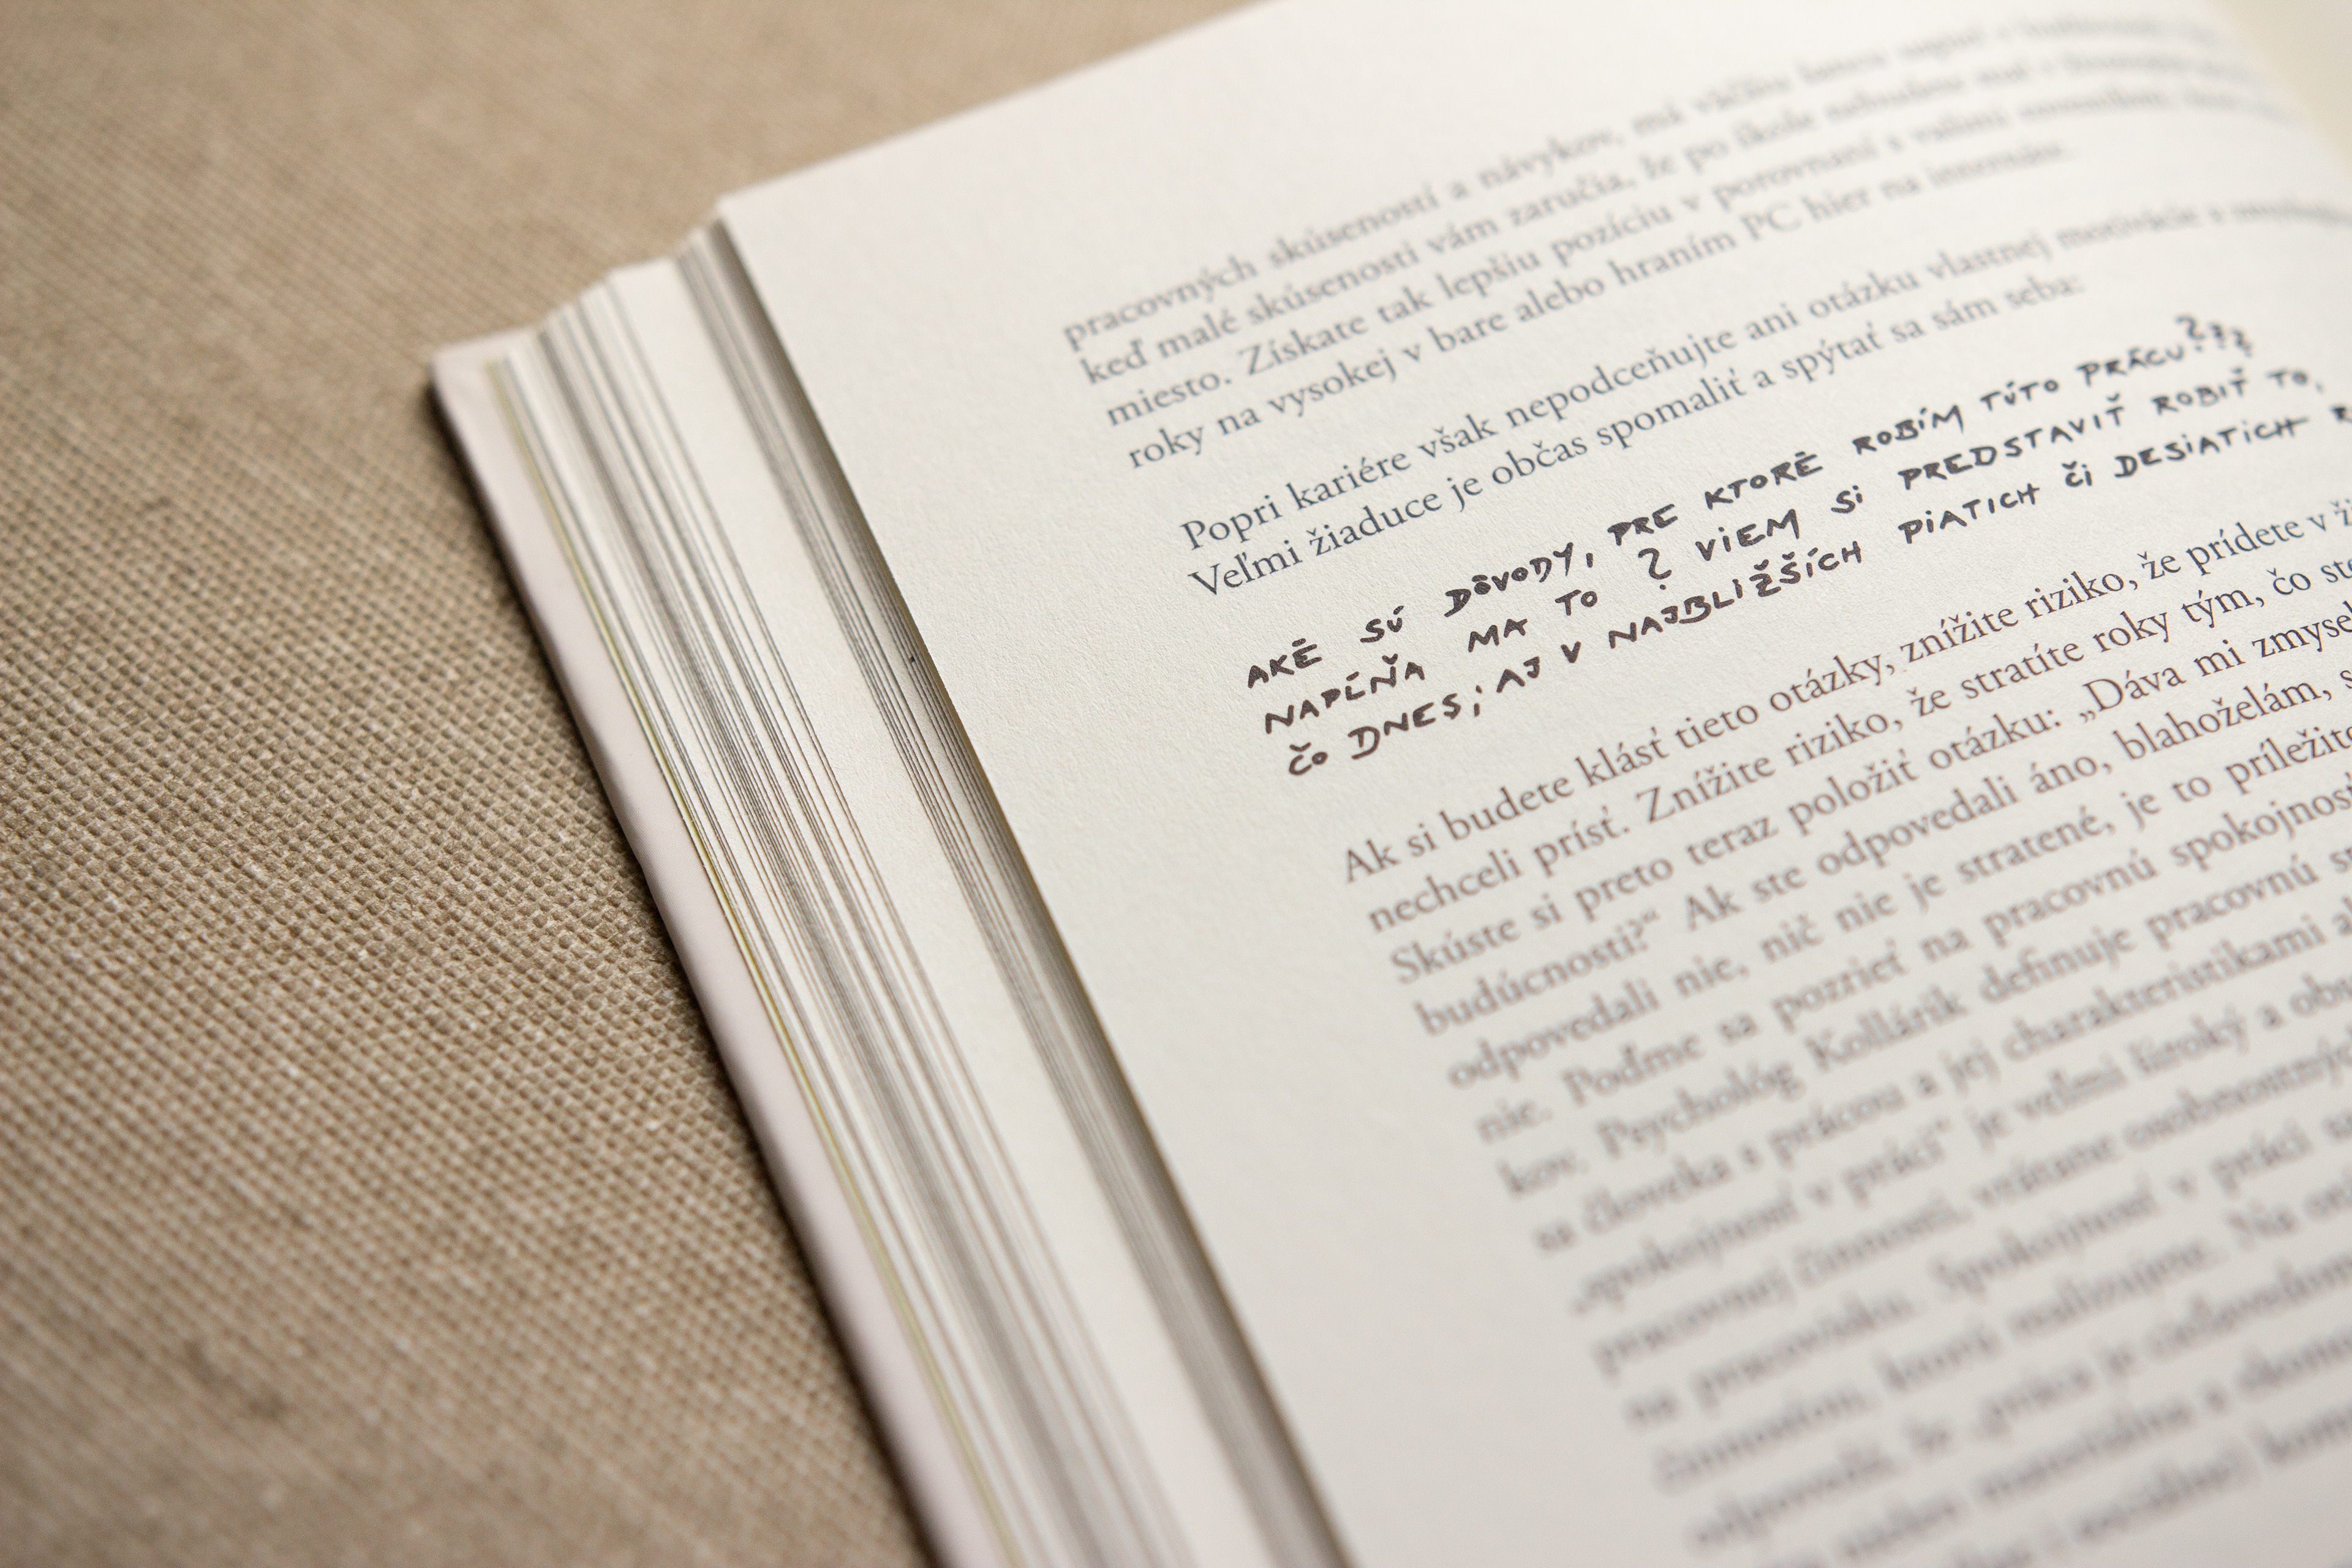 pracovných skúseností a návykov, má väčšiu šancu
keď malé skúsenosti vám zaručia, že po škole nebudete
miesto. Získate tak lepšiu pozíciu v porovnaní s vašimi
roky na vysokej v bare alebo hraním PC hier na internáte.
Popri kariére však nepodceňujte ani otázku vlastnej motivácie a
Veľmi žiaduce je občas spomaliť a spýtať sa sám seba:
AKÉ SÚ DÔVODY, PRE KTORÉ ROBÍM TÚTO PRÁCU???
NAPĹŇA MA TO ? VIEM SI PREDSTAVIŤ ROBIŤ TO,
ČO DNES; AJ V NAJBLIŽŠÍCH PIATICH ČI DESIATICH
Ak si budete klásť tieto otázky, znížite riziko, že prídete v
nechceli prísť. Znížite riziko, že stratíte roky tým, čo
Skúste si preto teraz položiť otázku: „Dáva mi
budúcnosti?“ Ak ste odpovedali áno, blahoželám,
odpovedali nie, nič nie je stratené, je to
nie. Poďme sa pozrieť na pracovnú
kov. Psychológ Kollárik definuje pracovnú
sa človeka s prácou a jej charakteristikami
„spokojnosť v práci“ je veľmi široký a
pracovnej činnosti, vrátane osobnostných
na pracovisku. Spokojnosť v práci
činnosťou, ktorú realizujeme. Na
odpovedali, že „práca je